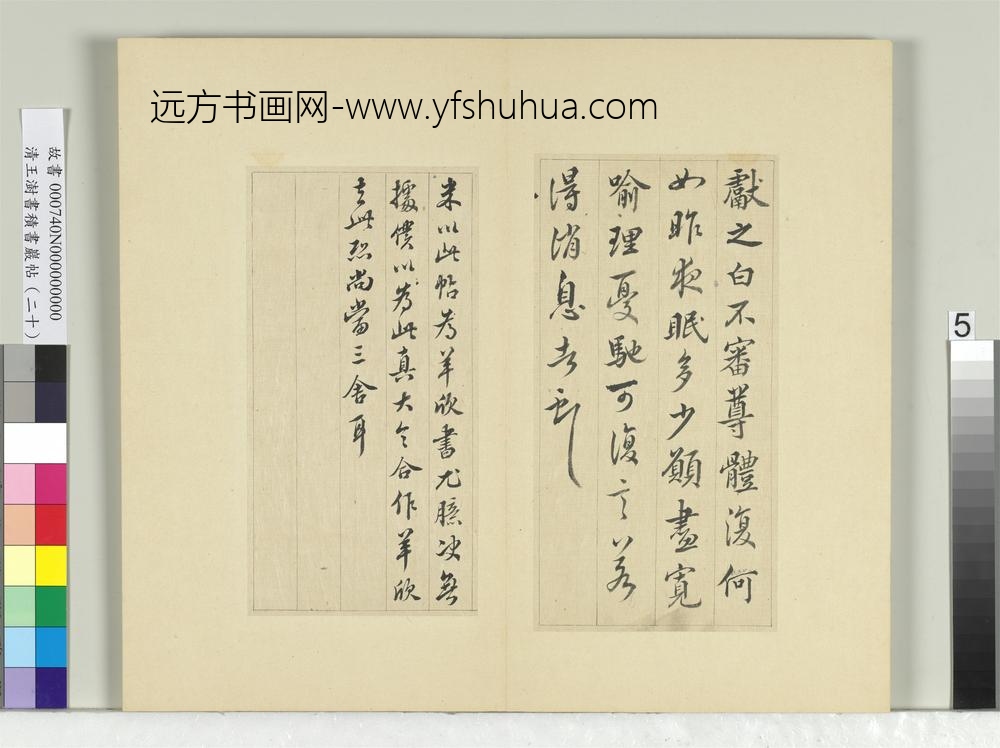 远方书画网-www.yfshuhua.com
獻之白不審尊體復何
如昨夜眠多少願盡寬
喻理憂馳可復言以若
得消息告耶
米以此帖為羊欣書尤臆決無
據僕以為此真大令合作羊欣
去此恐尚當三舍耳
故書 000740N000000000
清王澍書積書巖帖(二十)
5